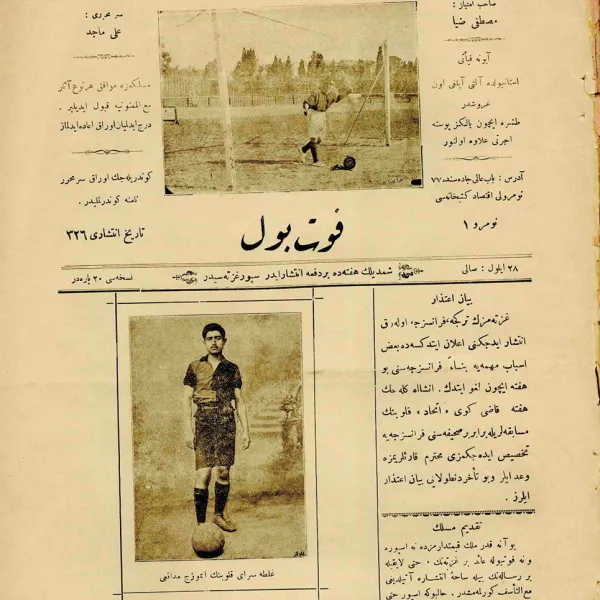 صاحب امتیاز :
مصطفی ضیا
آبونه فیأتی
استانبولده آلتی آیلغی اون
غروشدر
طشره ایچون یالکز پوسته
اجرتی علاوه اولنور
آدرس : باب عالی جاده سنده ۷۷
نومرولی اقتصاد کتبخانه سی
نومرو ۱
سر محرری :
علی ماجد
مسلکمزه موافق هر نوع آثار
مع الممنونیه قبول ایدیلیر .
درج ایدلمیان اوراق اعاده ایدلماز
کوندریله جك اوراق سر محرر
نامنه کوندرلملیدر .
تاریخ انتشاری ۳۲۶
فوت بول
۲۸ ایلول : صالی
شمدیلك هفته ده بر دفعه انتشار ایدر سپور غزته سیدر
نسخه سی ۲۰ پاره در
بیان اعتذار
غزته مزك تركجه ، فرانسزجه اوله رق
انتشار ایده جكنی اعلان ایتدكسه ده بعض
اسباب مهمه یه بناءً فرانسزجه سنی بو
هفته ایچون لغو ایتدك . انشاالله كله جك
هفته قاضی كوی « اتحاد » قلوبنك
مسابقه لریله برابر بر صحیفه سنی فرانسزجه یه
تخصیص ایده جكمزی محترم قارئلریمزه
وعد ایلر و بو تأخردن طولایی بیان اعتذار
ایلرز .
تقدیم مسلك
بو آنه قدر ملك قیمتدارمزده نه اسپوره
و نه فوتبوله عائد بر غزته نك ، حتی لایقیله
بر رساله نك بیله ساحۀ انتشاره آتیلدیغی
مع التأسف كورلمه مشدر . حالبوكه اسپور حتی
غلطه سرای قلوبنك انموذج مدافعی